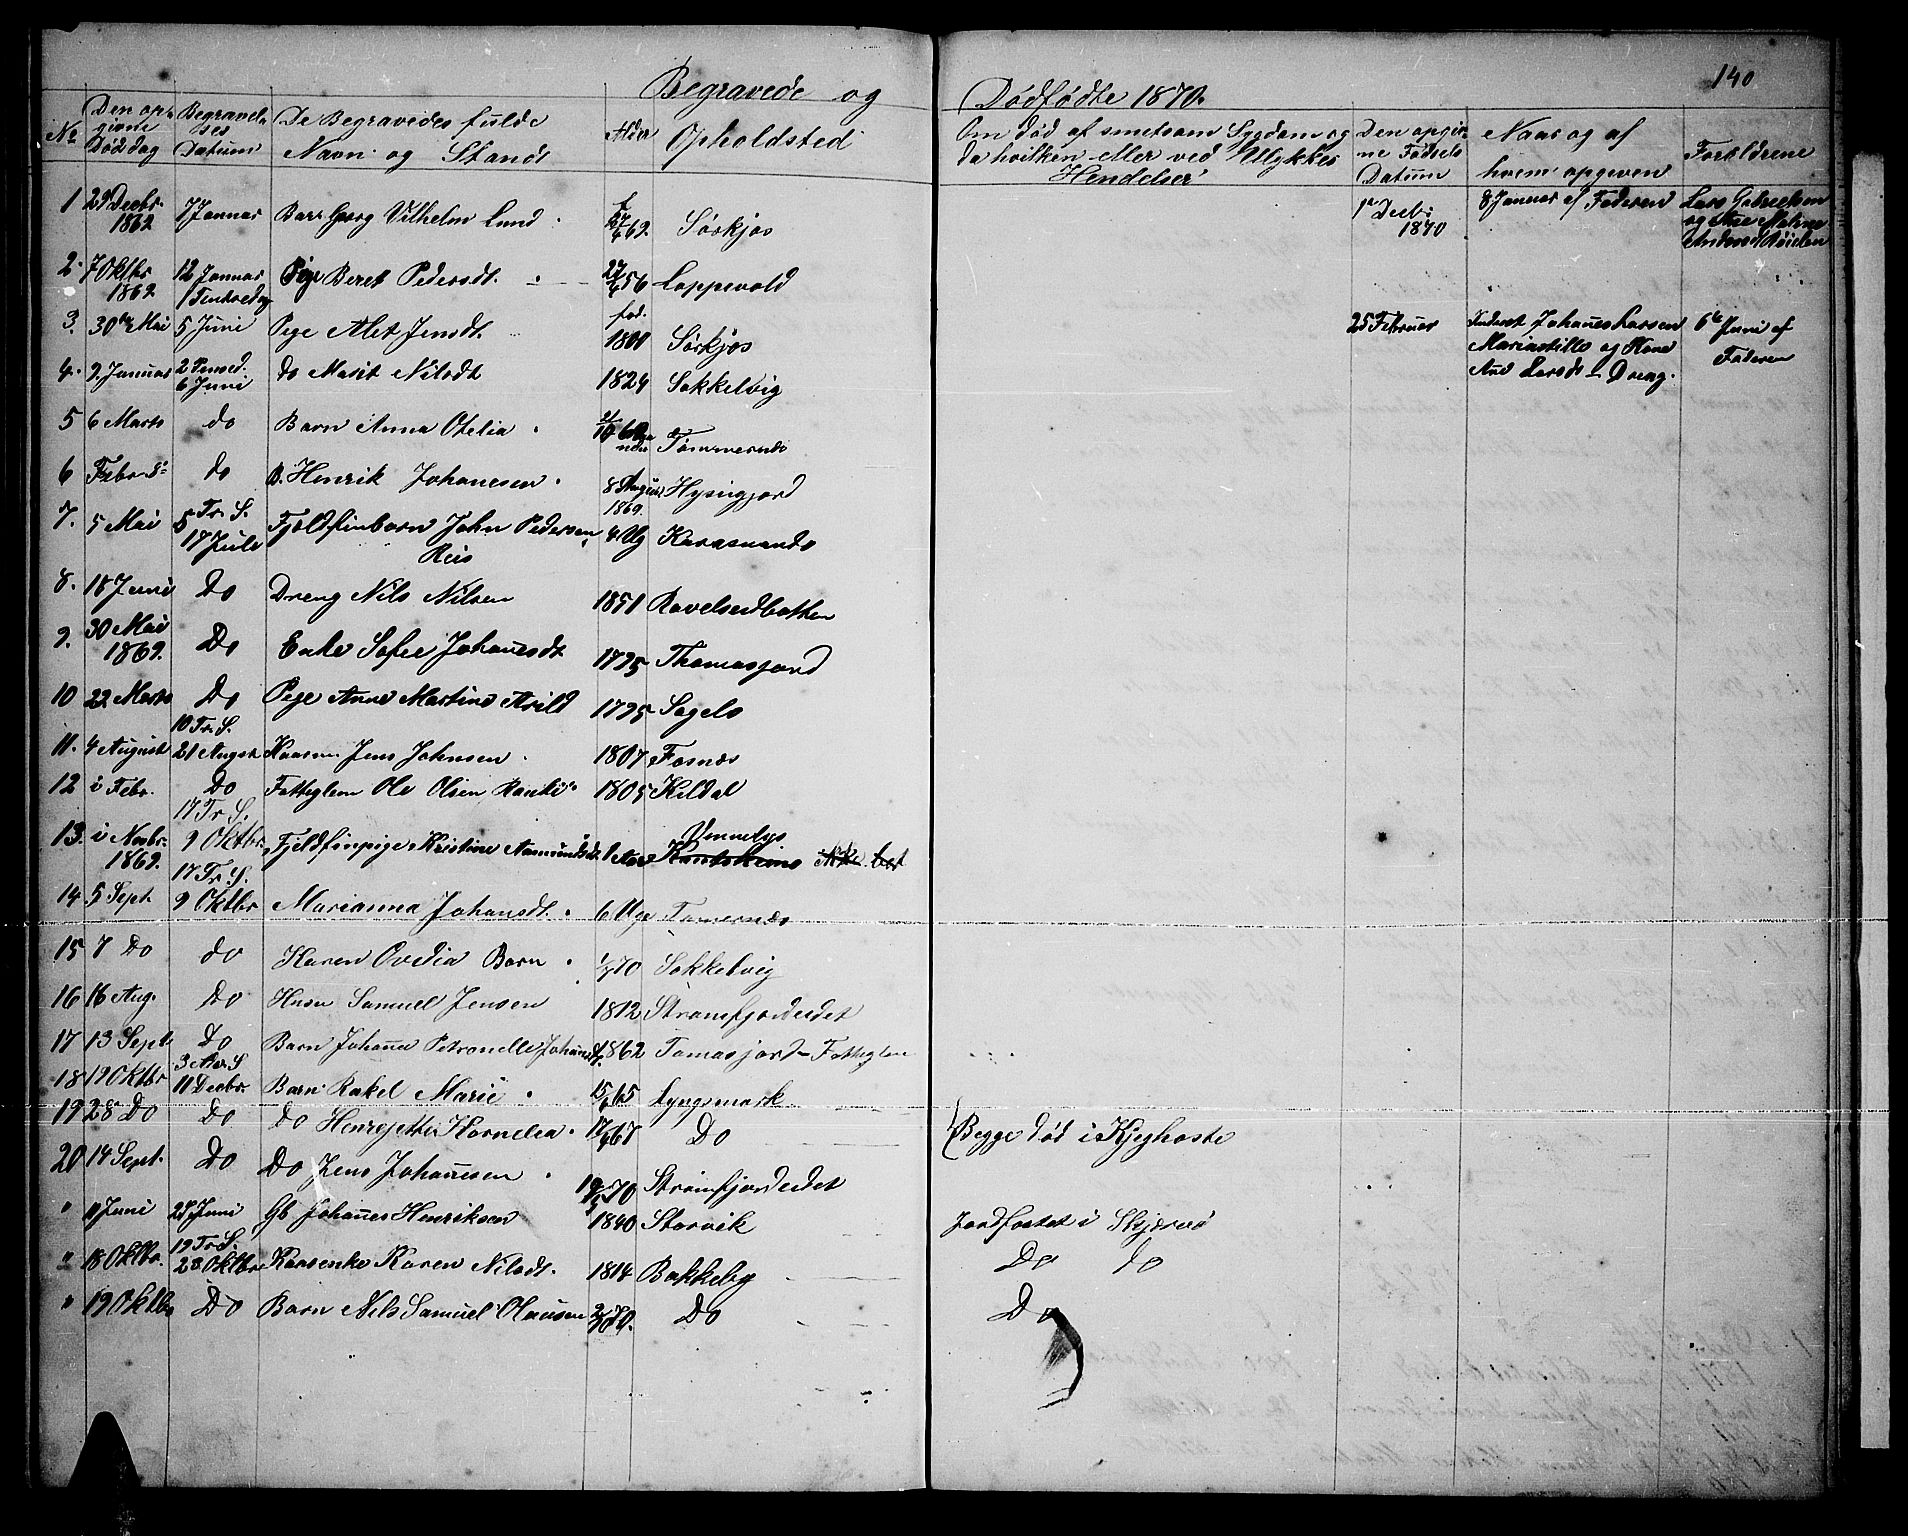 140
Begravede og Dødfødte 1870.
No
Den opgivne Dødsdag
Begravelses Datum
De Begravedes fulde Navn og Stand
Alder
Opholdsted
Om død af smitsom Sygdom og da hvilken eller ved Ulykkes Hendelser
Den opgivne Fødsels Datum
Naar og af hvem opgiven
Forældrene
1 29 Decbr. 1869 7 Januar Barn Georg Vilhelm Lund 69. Sørkjos
1 Decbr 1870 8 Januar af Faderen Lars Gabrielsen og Ane Malene Andersd
2. 7 Oktbr 1869 12 Januar Pige Beret Pedersdt. 56 Loppevold
3. 30te Mai 5 Juni Pige Alet Jensdt. fød. 1800 Sørkjos
25 Februar Johanes Larsen og Kone Ane Larsdt - Dreng. 6te Juni af Faderen
4. 9. Januar 2 Pinsed. 6 Juni do Marit Nilsdt 1824 Sokkelvig
5 6 Marts do Barn Anna Otelia 69 Tømmernæs
6 Febr do B. Henrik Johanesen 8 August 1869. Hysingjord
7. 5 Mai 5 Tr. S. 17 Juli Fjeldfinbarn John Pedersen Reis 4 Ug
8. 18 Juni Do Dreng Nils Nilsen 1851 Ravelseidbotten
9. 30 Mai 1869. Do Enke Sofie Johanesdt 1795 Thomasjord
10 22 Marts Do Pige Anne Martine Arild 1795 Sagels
11. 4 August 10 Tr. S. 21 Augst Kaarm. Jens Johnsen 1807 Fosnæs
12 i Febr. Do Fattiglem Ole Olsen 1805 Kildal
13. i Novbr. 1869. 17 Tr S. 9 Oktbr. Fjeldfinpige Kristine Aamundsdt. 1 Aar
14 5 Sept. 17 Tr. S. 9 Oktbr Marianna Johansdt. 6 Uge Tømernæs
15 7 Do do Karen Ovedia Barn 70 Sokkelvig
16 16 Aug. Do Husm Samuel Jensen 1812 Straumfjordeidet
17 13 Sept Do Barn Johana Petronelle 1862 Tomasjord - Fattiglem
18 19 Oktbr 3 Adv S 11 Decbr. Barn Rakel Marie 15/6 65 Lyngsmark
19 28 Do Do Do Henrijette Kornelia 67 Do
Begge død i Kighoste
20 14 Sept. Do Do Jens Johanesen 70 Straumfjordeidet
" 11 Juni 28 Juni Gb Johanes Henriksen 1840 Storvik Jordfæstet i Skjærvø
" 18 Oktbr. 19 Tr. S. 23 Oktbr Kaarenke Karen Nilsdt. 1814 Bakkeby Do do
" 19 Oktbr Do Barn Nils Samuel Olausen 70. Do Do